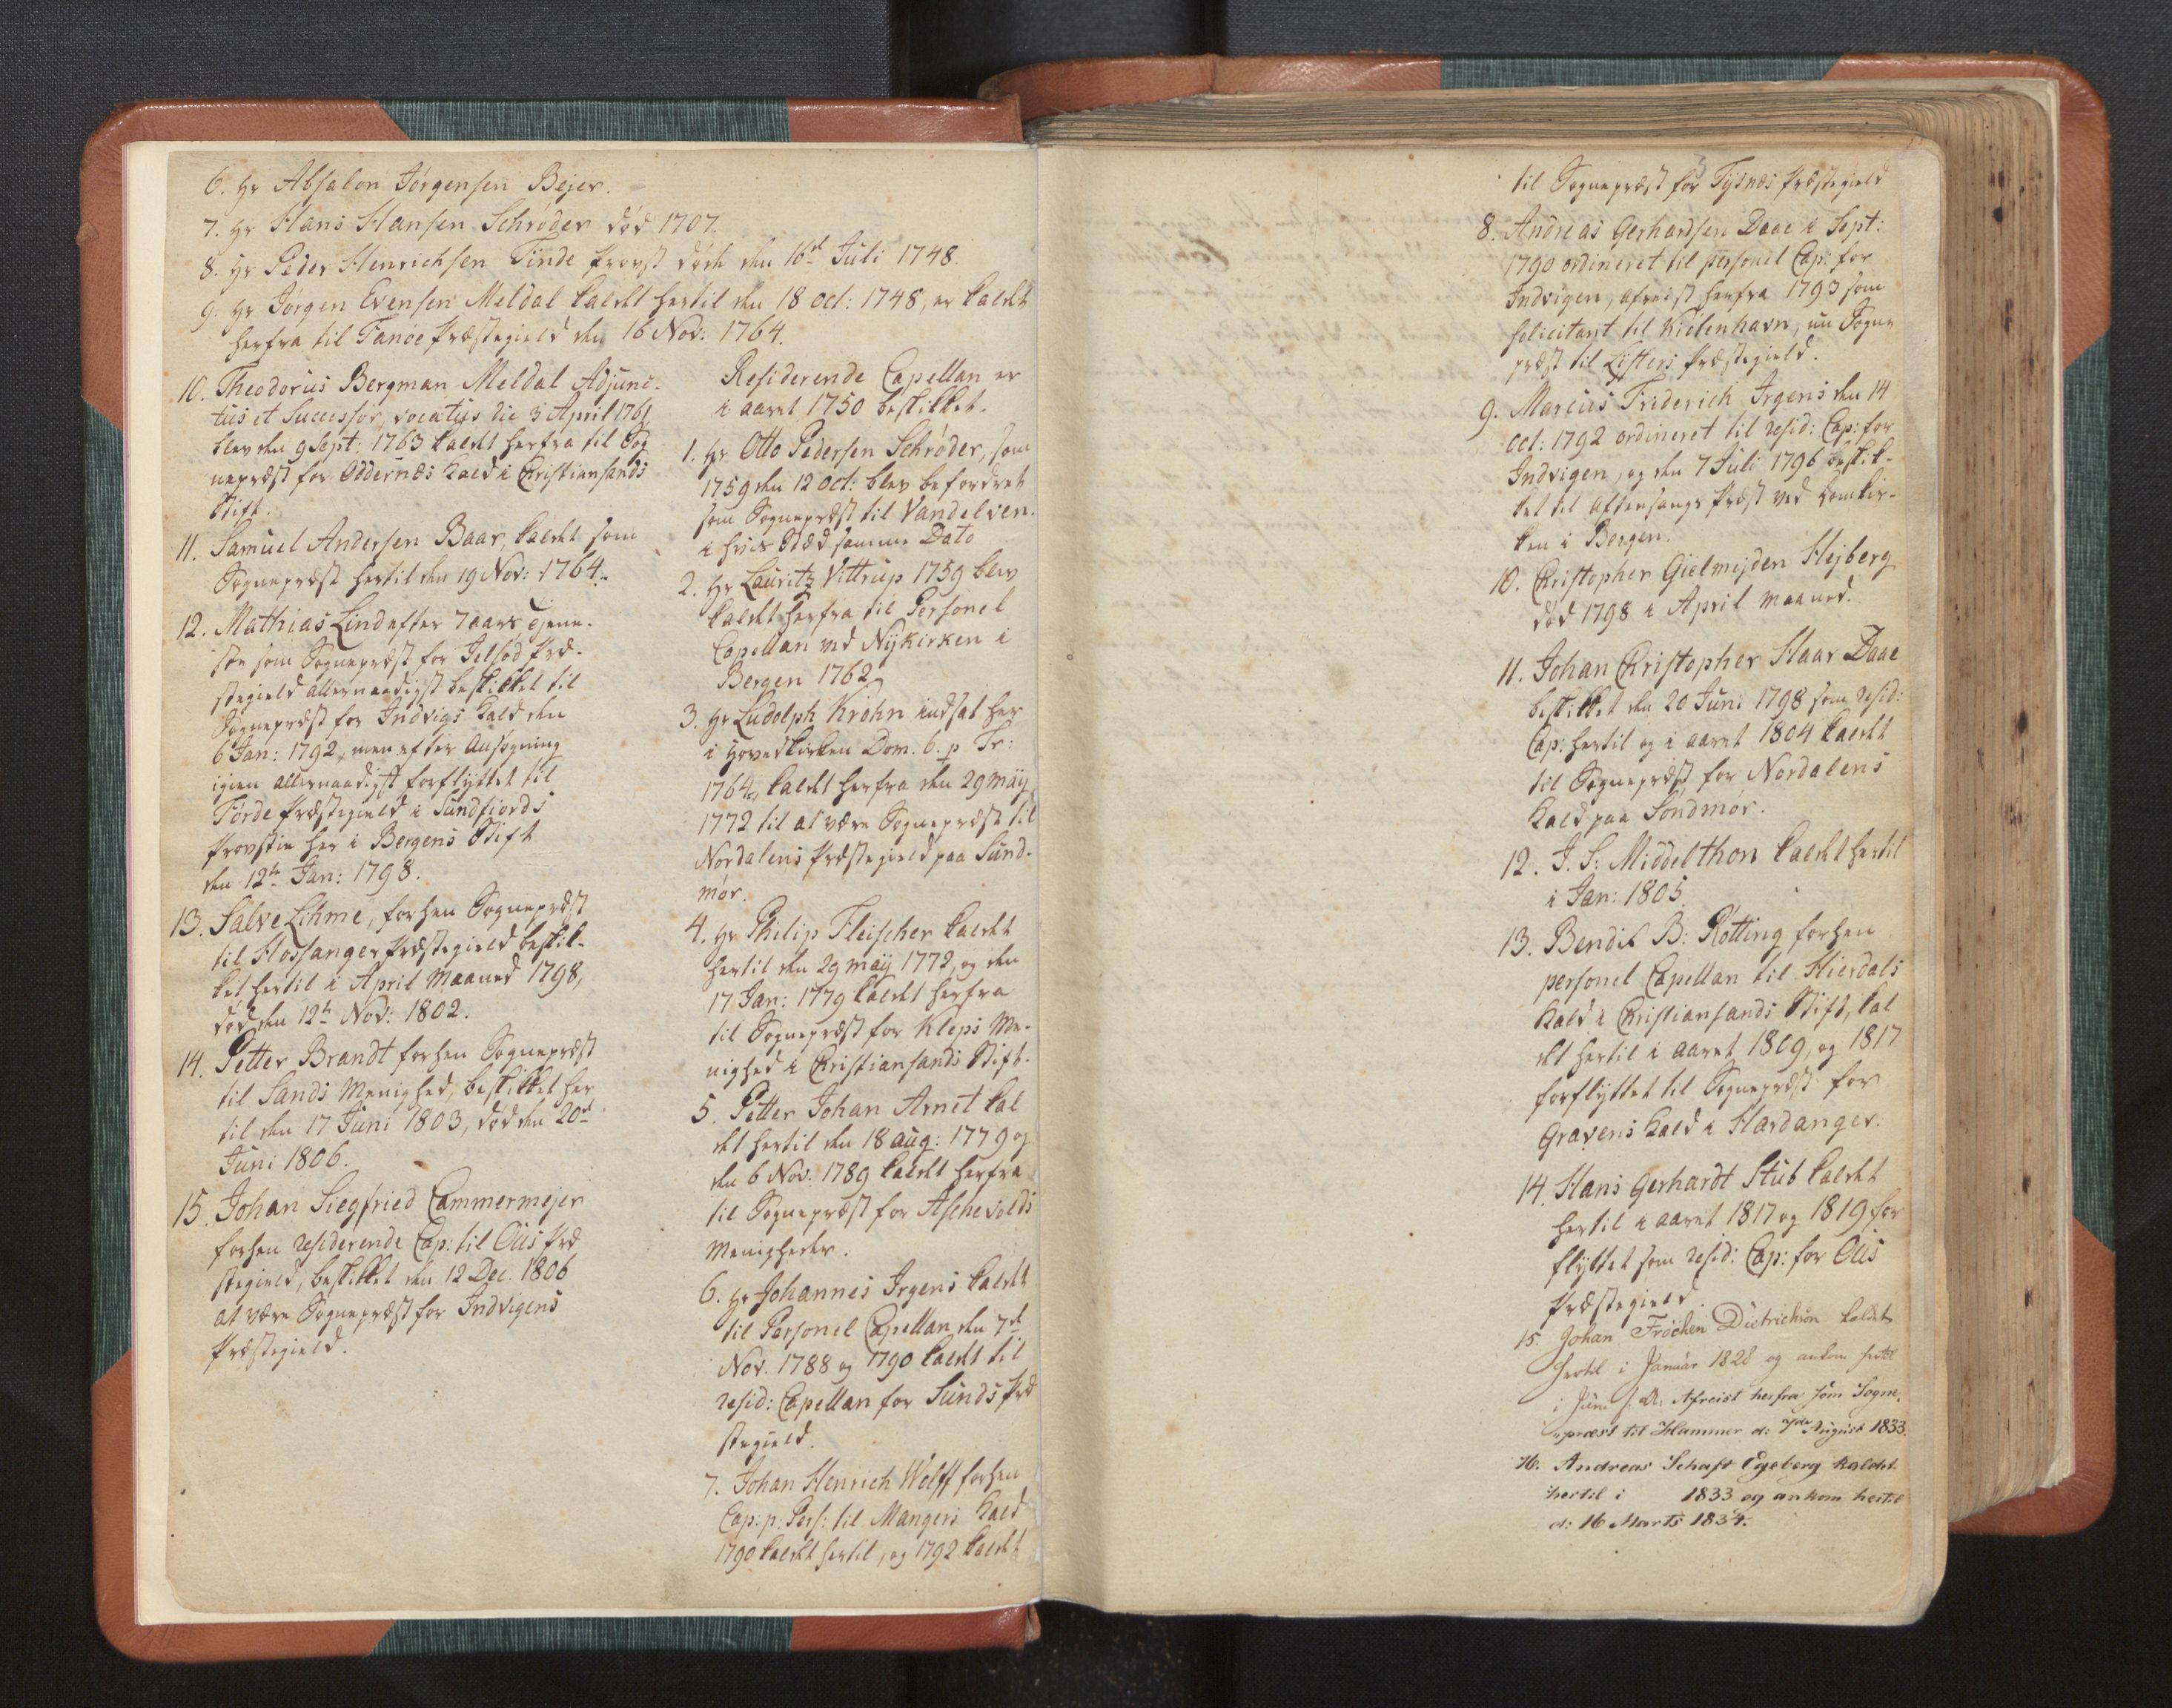 6. Hr Absalon Jørgensen Bejer.
7. Hr Hans Hansen Schrøder død 1707.
8. Hr Peder Henrichsen Finde Provst døde den 16d Juli 1748.
9. Hr Jørgen Evensen Meldal kaldet hertil den 18 oct: 1748, er kaldet
herfra til Fanøe Præstegield den 16 Nov: 1764.
10. Theodorus Bergman Meldal Adjunc-
tus et Successor, vocatus die 3 April 1761,
blev den 9 Sept: 1763 kaldet herfra til Sog
nepræst for Oddernæs Kald i Christiansands
Stift.
11. Samuel Andersen Baar, kaldet som
Sognepræst hertil den 19 Nov: 1764.
12. Mathias Lind efter 7 aars Tiene-
ste som Sognepræst for Jelsøe Præ-
stegield allernaadigst beskikket til
Sognepræst for Indvigs Kald den
6 Jan: 1792, men efter Ansøgning
igien allernaadigst forflyttet til
Førde Præstegield i Sundfiords
Provstie her i Bergens Stift
den 12te Jan: 1798.
13. Salve Lihme, forhen Sognepræst
til Hossanger Præstegield beskik-
ket hertil i April Maaned 1798,
død den 12te Nov: 1802.
14. Petter Brandt forhen Sognepræst
til Sands Menighed, beskikket her
til den 17 Juni 1803, død den 20d
Juni 1806.
15. Johan Siegfried Cammermejer
forhen residerende Cap: til Ous Præ
stegield, beskikket den 12 Dec. 1806
at være Sognepræst for Indvigens
Præstegield.
Residerende Capellan er
i aaret 1750 beskikket.
1. Hr Otto Pedersen Schrøder, som
1759 den 12 oct: blev befordret
som Sognepræst til Vandelven.
i hvis Stæd samme Dato
2. Hr Lauritz Vittrup 1759 blev
kaldet herfra til Personel
Capellan ved Nykirken i
Bergen 1762
3. Hr Ludolph Krohn indsat her
i Hovedkirken Dom. 6. p Tr:
1764, kaldet herfra den 29 maij
1772 til at være Sognepræst til
Nordalens Præstegield paa Sund-
mør.
4. Hr Philip Fleischer kaldet
hertil den 29 maij 1772, og den
17 Jan: 1779 kaldet herfra
til Sognepræst for Kleps Me-
nighed i Christiansands Stift.
5. Petter Johan Arnet kal
det hertil den 18 aug: 1779 og
den 6 Nov. 1789 kaldet herfra
til Sognepræst for Aschevolds
Menigheder.
6. Hr Johannes Irgens kaldet
til Personel Capellan den 7d
Nov. 1788 og 1790 kaldet til
resid: Capellan for Sunds Præ
stegield.
7. Johan Henrich Wolff forhen
Cap: p: Pers: til Mangers Kald
1790 kaldet hertil, og 1792 kaldet
til Sognepræst for Tysnæs Præstegield
8. Andreas Gerhardsen Daae i Sept:
1790 ordineret til personel Cap: for
Indvigen, afreist herfra 1793 som
solicitant til Kiøbenhavn, nu Sogne
præst til Lysters Præstegield.
9. Marcus Friderich Irgens den 14
oct: 1792 ordineret til resid: Cap: for
Indvigen, og den 7 Juli 1796 beskik-
ket til Aftensangs Præst ved Domkir-
ken i Bergen.
10. Christopher Gielmeyden Hejberg
død 1798 i April Maaned.
11. Johan Christopher Haar Daae
beskikket den 20 Juni 1798 som resid:
Cap: hertil og i aaret 1804 kaldet
til Sognepræst for Nordalens
Kald paa Søndmør.
12. J. S: Middelthon kaldet hertil
i Jan: 1805.
13. Bendix B: Røtting forhen
personel Capellan til Hierdals
Kald i Christiansands Stift, kal
det hertil i aaret 1809, og 1817
forflyttet til Sognepræst for
Gravens Kald i Hardanger.
14. Hans Gerhardt Stub kaldet
hertil i aaret 1817 og 1819 for
flyttet som resid: Cap: for Ous
Præstegield.
15. Johan Frøchen Dietrichson kaldet
hertil i Januar 1828 og ankom hertil
i Juni s. A. Afreist herfra som Sogne-
præst til Hammer d: 7de August 1833.
16. Andreas Schaft Egeberg kaldet
hertil i 1833 og ankom hertil
d: 16 Marts 1834.